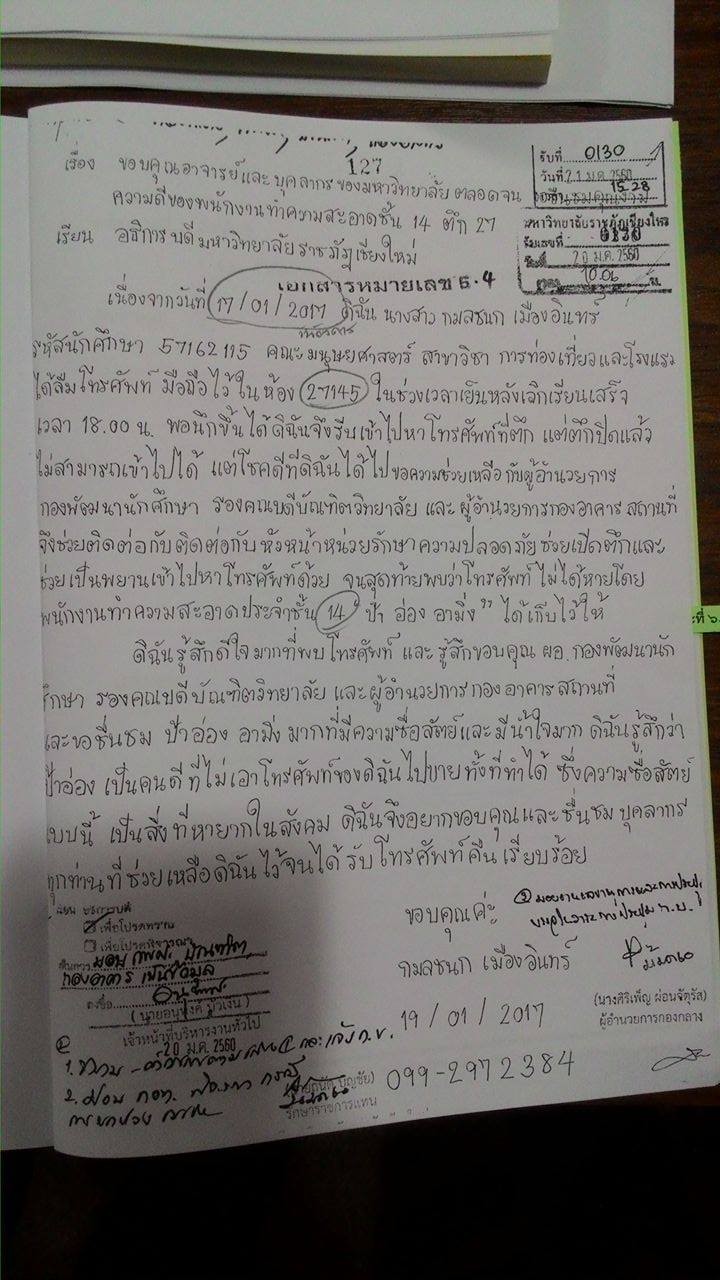 127
รับที่ 0130
วันที่ 21 ม.ค. 2560
15.28
เรื่อง ขอบคุณอาจารย์และบุคลากรของมหาวิทยาลัย ตลอดจน
ความดีของพนักงานทำความสะอาดชั้น 14 ตึก 27
มหาวิทยาลัยราชภัฏเชียงใหม่
รับเลขที่ 0130
20 ม.ค. 2560
10.06 น.
เรียน อธิการบดีมหาวิทยาลัยราชภัฏเชียงใหม่
เอกสารหมายเลข 5.4
เนื่องจากวันที่ 17/01/2017 ดิฉัน นางสาว กมลชนก เมืองอินทร์
รหัสนักศึกษา 57162115 คณะมนุษยศาสตร์ สาขาวิชา การท่องเที่ยวและโรงแรม
ได้ลืมโทรศัพท์ มือถือไว้ในห้อง 27145 ในช่วงเวลาเย็นหลังเลิกเรียนเสร็จ
เวลา 18.00 น. พอนึกขึ้นได้ดิฉันจึงรีบเข้าไปหาโทรศัพท์ที่ตึก แต่ตึกปิดแล้ว
ไม่สามารถเข้าไปได้ แต่โชคดีที่ดิฉันได้ไปขอความช่วยเหลือ กับผู้อำนวยการ
กองพัฒนานักศึกษา รองคณบดีบัณฑิตวิทยาลัย และ ผู้อำนวยการกองอาคาร สถานที่
จึงช่วยติดต่อกับติดต่อกับหัวหน้าหน่วยรักษาความปลอดภัย ช่วยเปิดตึกและ
ช่วยเป็นพยานเข้าไปหาโทรศัพท์ด้วย จนสุดท้ายพบว่าโทรศัพท์ ไม่ได้หายโดย
พนักงานทำความสะอาดประจำชั้น 14 "ป้า อ่อง อามิ่ง" ได้เก็บไว้ให้
ดิฉันรู้สึกดีใจมากที่พบโทรศัพท์ และ รู้สึกขอบคุณ ผอ.กองพัฒนานัก
ศึกษา รองคณบดีบัณฑิตวิทยาลัย และผู้อำนวยการกองอาคารสถานที่
และขอชื่นชม ป้าอ่อง อามิ่ง มากที่มีความซื่อสัตย์และมีน้ำใจมาก ดิฉันรู้สึกว่า
ป้าอ่อง เป็นคนดี ที่ไม่เอาโทรศัพท์ของดิฉันไปขายทั้งที่ทำได้ ซึ่งความซื่อสัตย์
แบบนี้ เป็นสิ่งที่หายากในสังคม ดิฉันจึงอยากขอบคุณและชื่นชม บุคลากร
ทุกท่านที่ช่วยเหลือดิฉันไว้จนได้รับโทรศัพท์คืน เรียบร้อย
ขอบคุณค่ะ
กมลชนก เมืองอินทร์
19 / 01 / 2017
099-2972384
เพื่อโปรดทราบ
เพื่อโปรดพิจารณา
เจ้าหน้าที่บริหารงานทั่วไป
20 ม.ค. 2560
รักษาราชการแทน
(นางศิริเพ็ญ ผ่อนจัตุรัส)
ผู้อำนวยการกองกลาง